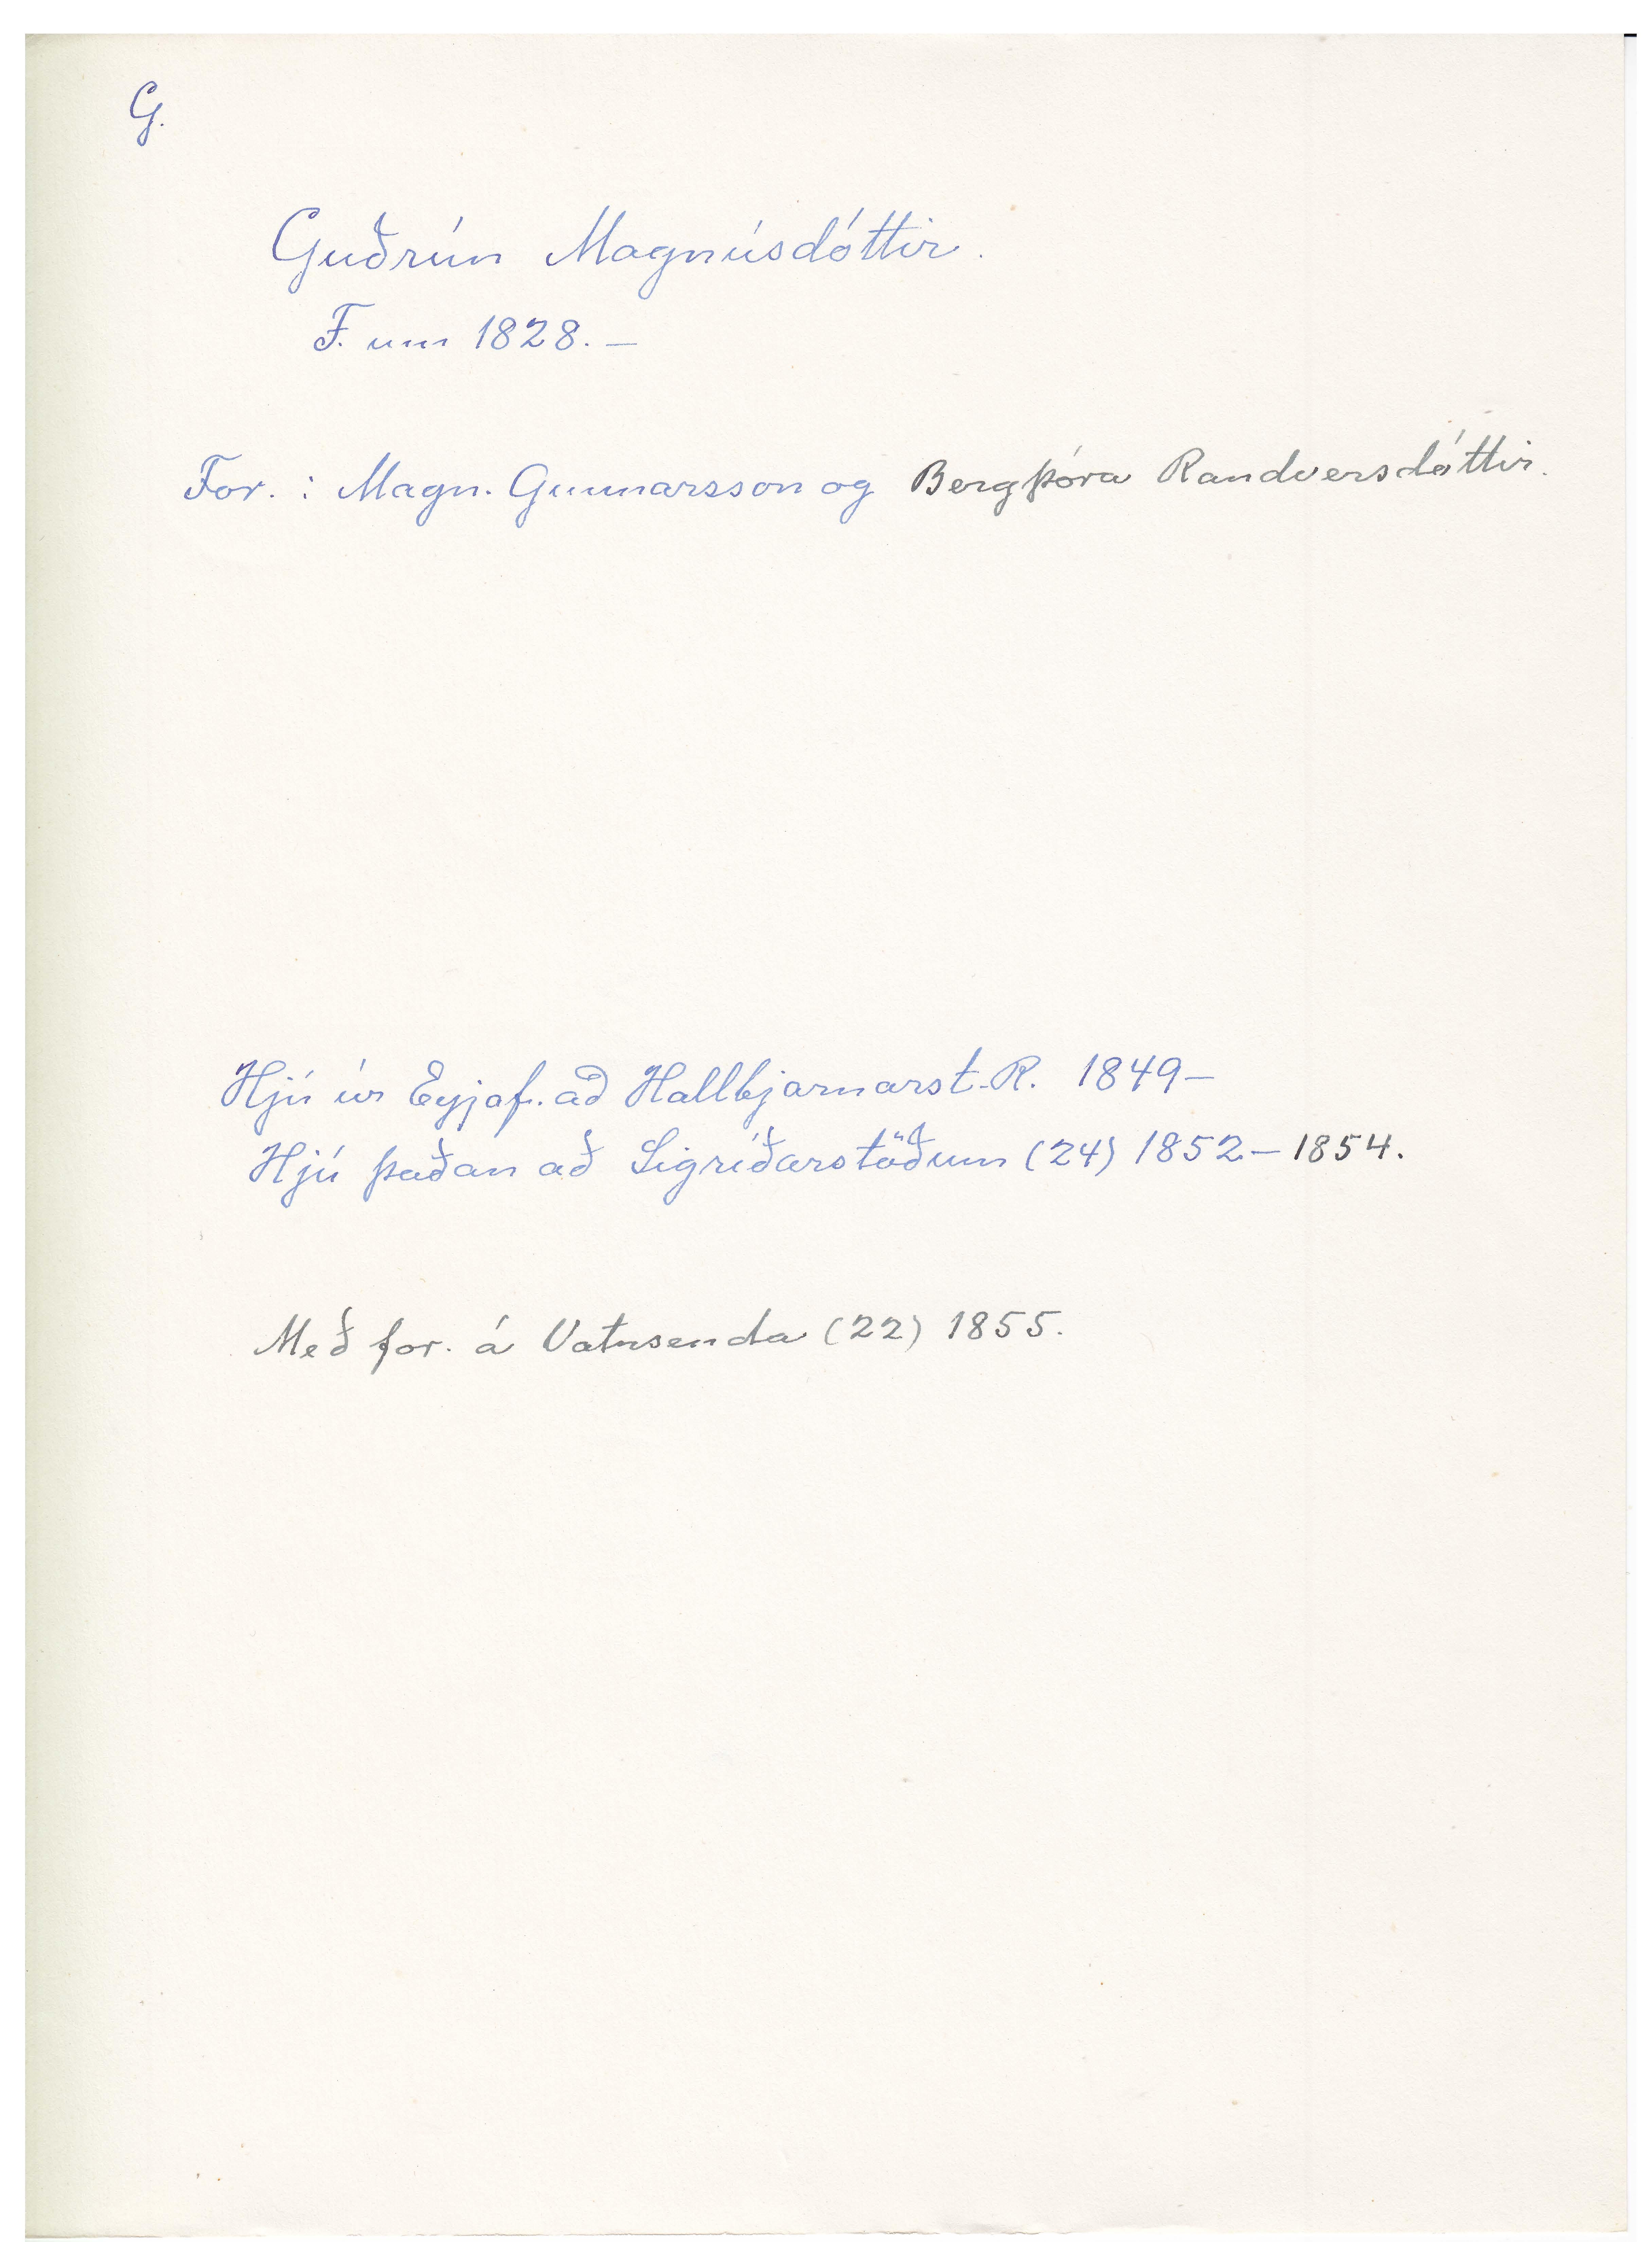 G.
Guðrún Magnúsdóttir.
F. um 1828. –
For. : Magn. Gunnarsson og Bergþóra Randversdóttir.
Hjú úr Eyjaf. að Hallbjarnarst. R. 1849 –
Hjú þaðan að Sigríðarstöðum (24) 1852 – 1854.
Með for. á Vatnsenda (22) 1855.